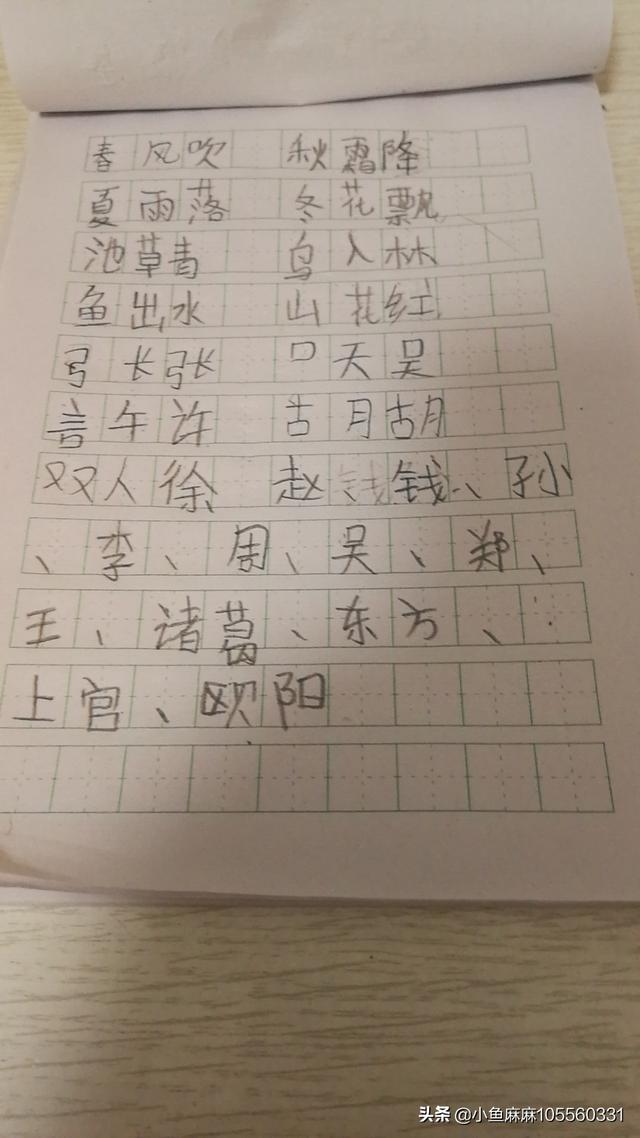 春风吹 秋霜降
夏雨落 冬花飘
池草青 鸟入林
鱼出水 山花红
弓长张 口天吴
言午许 古月胡
双人徐 赵钱钱、孙
、李、周、吴、郑、
王、诸葛、东方、
上官、欧阳
头条 @小鱼麻麻105560331